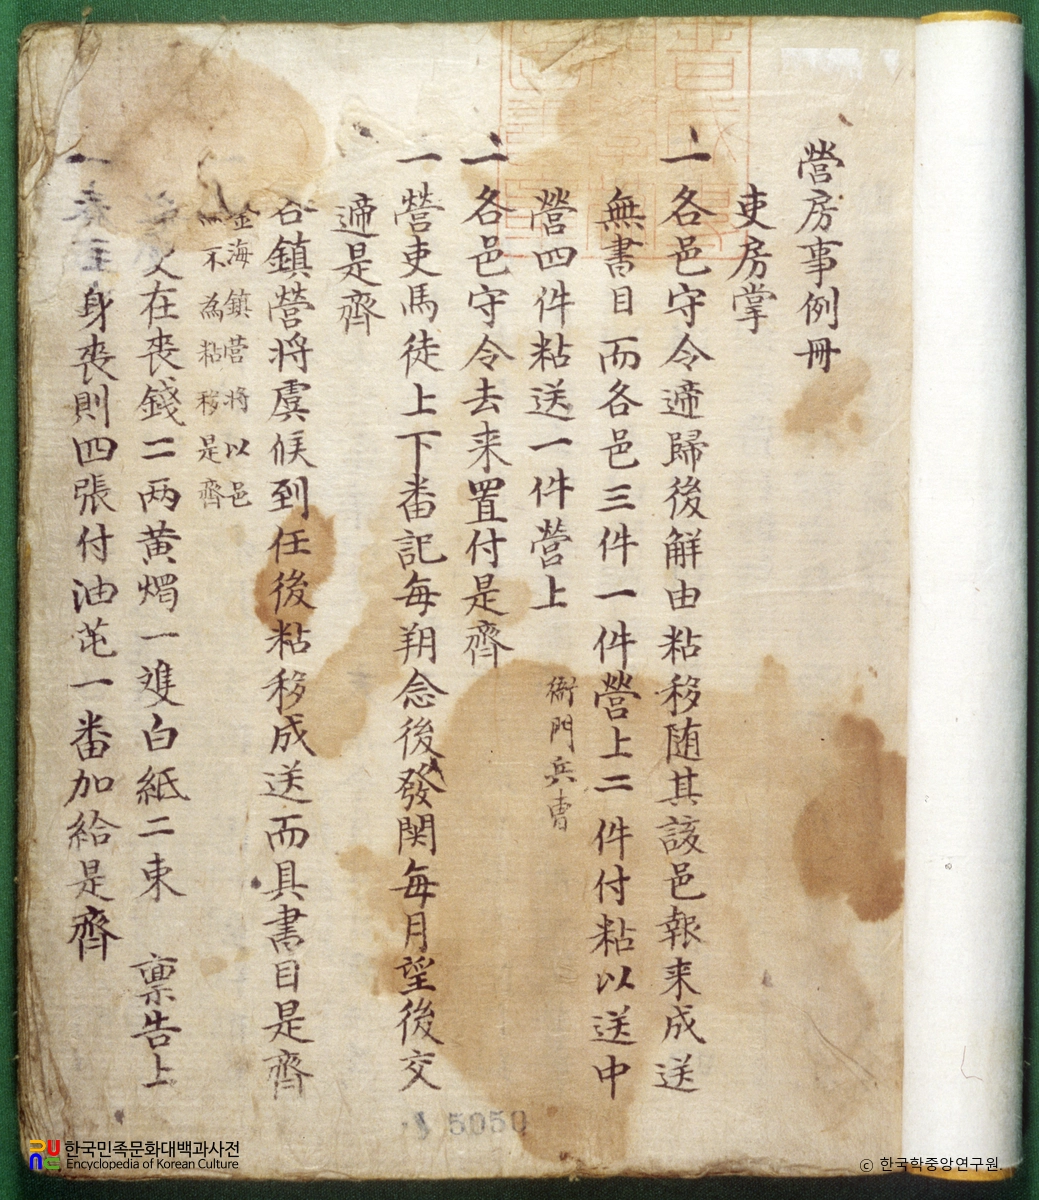 營房事例冊
吏房掌
一各邑守令遞歸後解由粘移随其該邑報来成送
無書目而各邑三件一件營上二件付粘以送中
營四件粘送一件營上
衙門兵曹
一各邑守令去来置付是齊
一營吏馬徒上下番記每朔念後發関每月望後交
遞是齊
各鎮營将虞候到任後粘移成送而具書目是齊
金海鎮营将以邑
不為粘移是齊
在喪錢二两黄燭一䨇白紙二束 禀告上
一 身喪則四張付油芚一番加給是齊
5050
한국민족문화대백과사전
Encyclopedia of Korean Culture
© 한국학중앙연구원